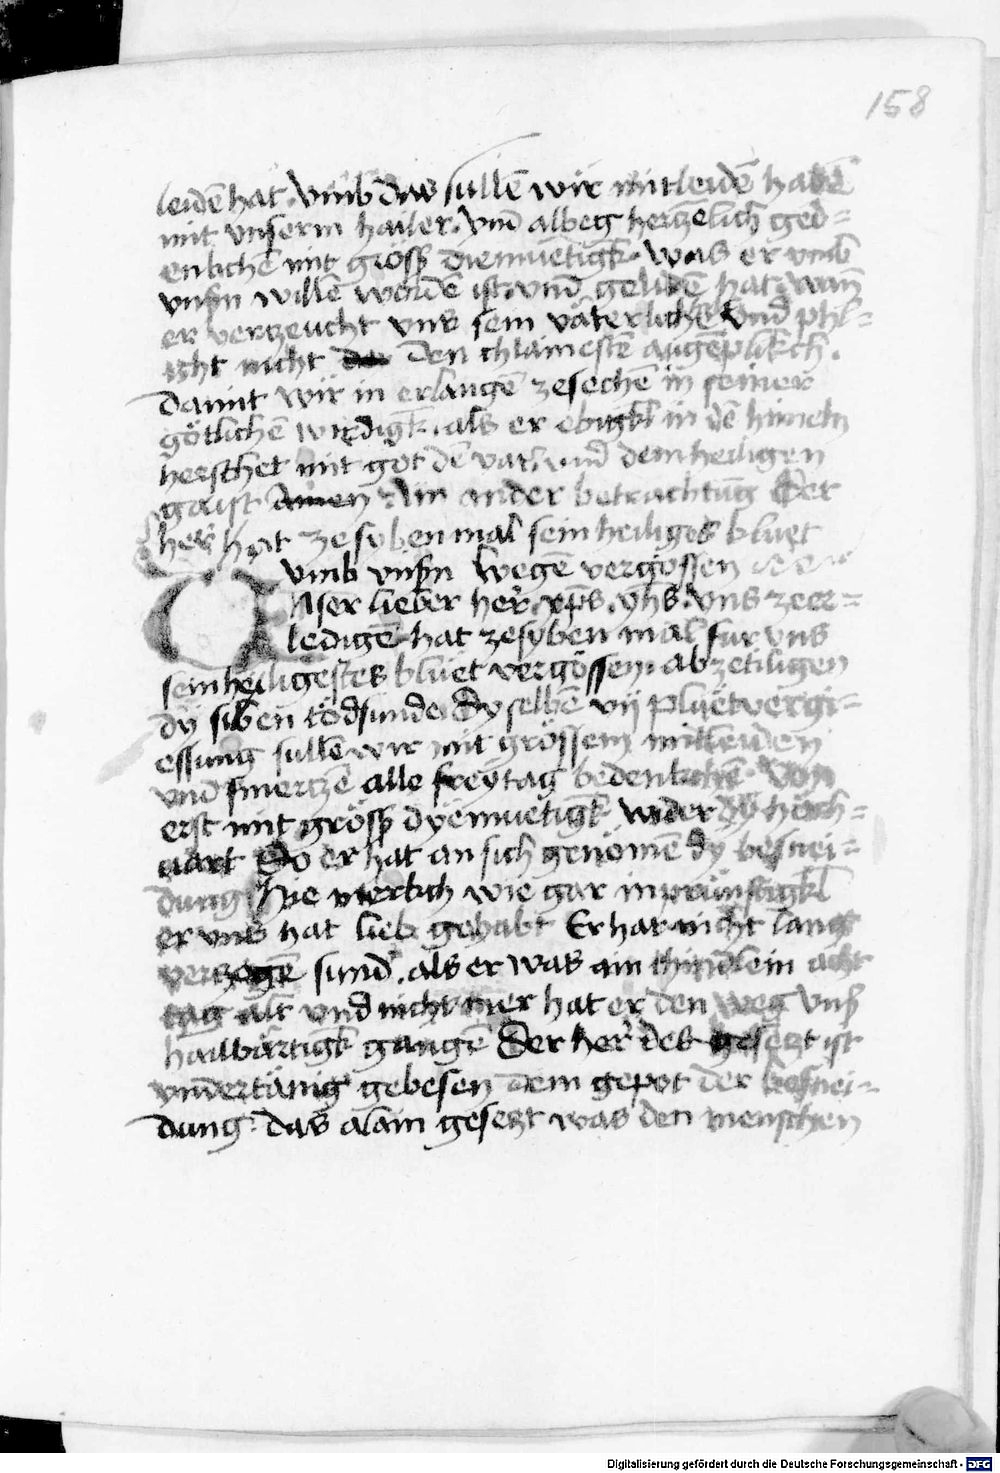 158
leidē hat. Vmb das sullē wir mitleidē habē
mit vnserm hailer. Vnd albeg hertzelich ged=
enkchē mit gröss diemuetigk. Was er vmb
vnsm willē wordē ist. vnd gelidē hat. wan
er verzeucht vns sein väterlichē vnd phl=
icht nicht den chlainestē augēplikch.
Damit wir in erlangē zesechē in seiner
götlichē wirdigk. als er ebigkl in dē himeln
herschet mit got dē vat. vnd dem heiligen
gaist Amen. Ain ander betrachtūg Der
her hat zesyben mal sein heiliges bluet
vmb vnsm wegē vergossen
Vnser lieber her. xp̄s. yh̄s. vns zeer=
ledigē hat zesyben mal fur vns
sein heiligestes bluet vergössen. abzetiligen
dy siben tödsünde. Dy selbē vij pluetvergi=
essung sullē wir mit grössem mitleiden
vnd smertzē alle freytag bedenkchē. Vom
erst mit gröss dyemuetigk wider dy hoch=
uart Do er hat an sich genömē dy besnei=
dung Hie merkch wie gar inprünstigkl
er vns hat lieb gehabt Er hat nicht lang
verzogē sund. als er was ain chindlein acht
tag alt vnd nicht mer hat er den weg vns
hailbärtigk gangē Der her des gesetzt ist
vndertänig gebesen dem gepot der besnei=
dung. das alain gesetzt was den menschen
Digitalisierung gefördert durch die Deutsche Forschungsgemeinschaft - DFG